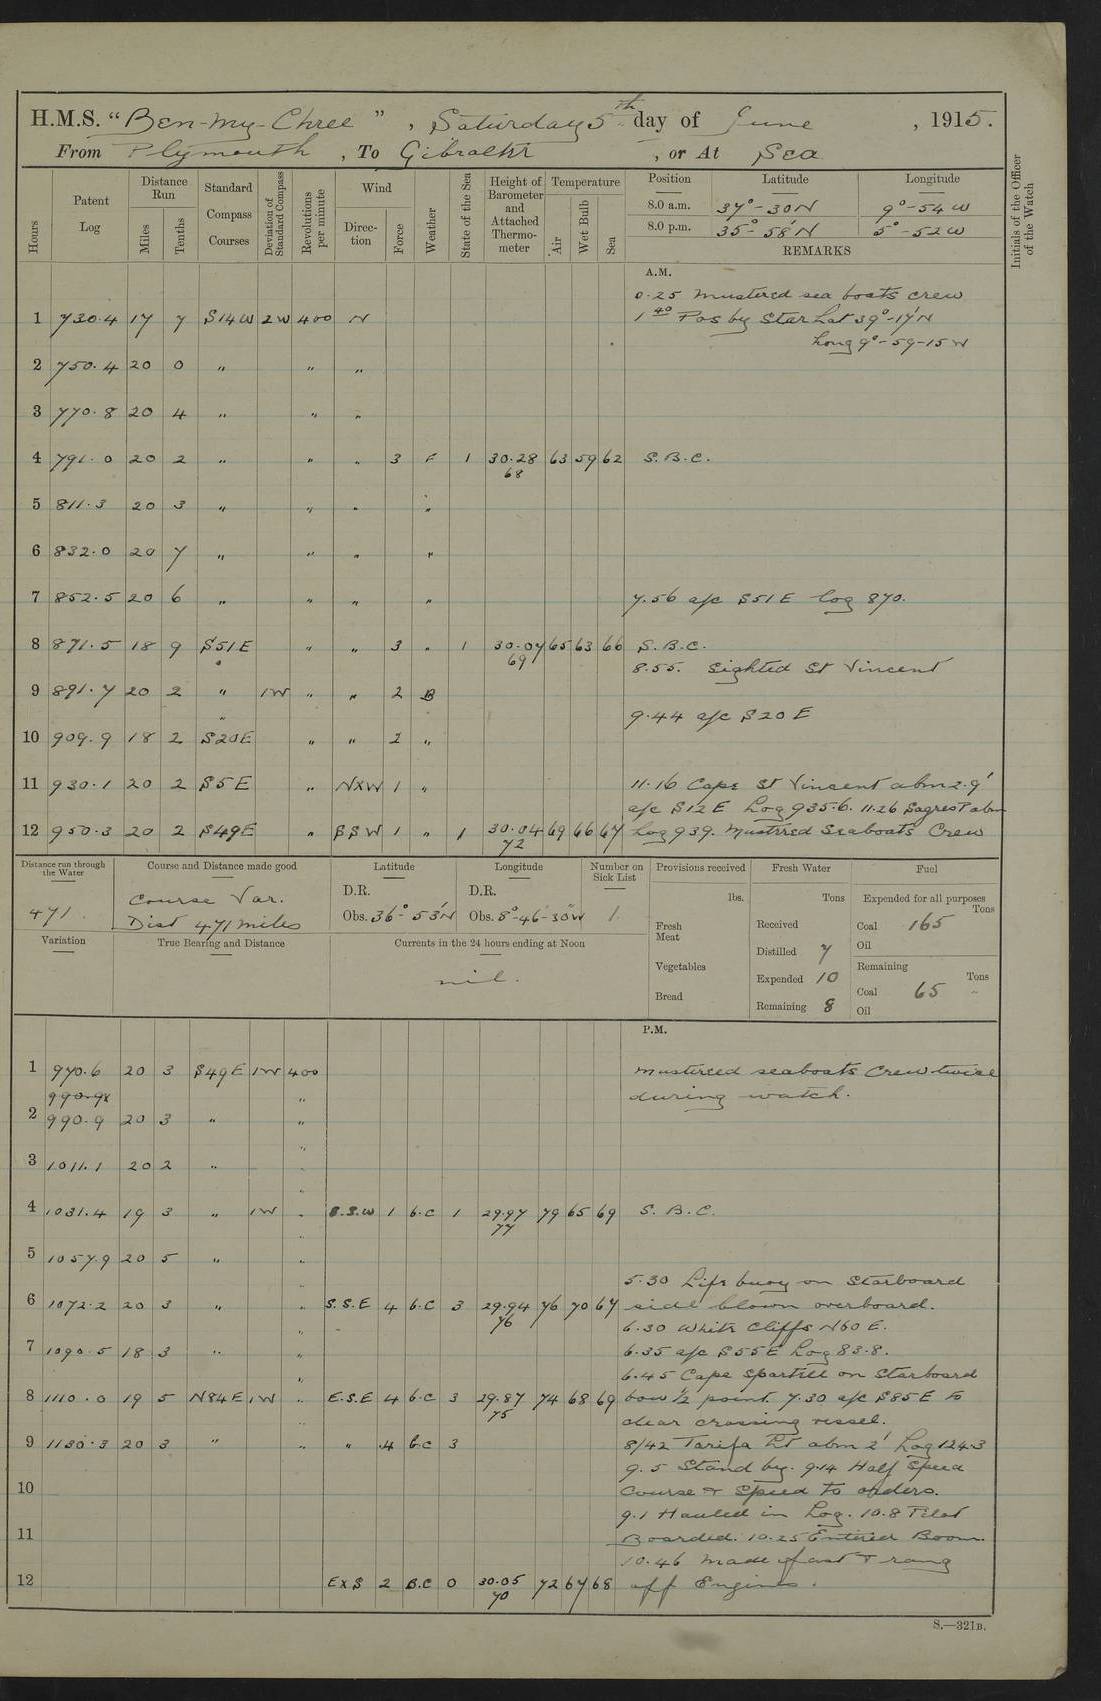 H.M.S. “Ben-my-Chree”, Saturday 5th day of June, 1915.
From Plymouth, To Gibraltr, or At Sea
Hours
Patent Log
Distance Run
Miles
Tenths
Standard Compass Courses
Deviation of Standard Compass
Revolutions per minute
Wind
Direction
Force
Weather
State of the Sea
Height of Barometer and Attached Thermometer
Temperature
Air
Wet Bulb
Sea
Position Latitude Longitude
8.0 a.m. 37°-30N 9°-54W
8.0 p.m. 35°-58'N 5°-52W
REMARKS
Initials of the Officer of the Watch
A.M.
0.25 Mustered sea boats crew
1 730.4 17 7 S14W 2W 400 N 1 40 Pos by Star Lat 39°-17'N
Long 9°-59-15W
2 750.4 20 0 " " "
3 770.8 20 4 " " "
4 791.0 20 2 " " " 3 F 1 30.28 63 59 62 S.B.C.
68
5 811.3 20 3 " " " "
6 832.0 20 7 " " " "
7 852.5 20 6 " " " " 7.56 a/c S51E log 870.
8 871.5 18 9 S51E " " 3 " 1 30.07 65 63 66 S.B.C.
69
8.55. Sighted St Vincent
9 891.7 20 2 " 1W " " 2 B
9.44 a/c S20E
10 909.9 18 2 S20E " " 2 "
11 930.1 20 2 S5E " NXW 1 " 11.16 Cape St Vincent abm 2.9'
a/c S12E Log 935.6. 11.26 Sagres Pt abm
12 950.3 20 2 S49E " SSW 1 " 1 30.04 69 66 67 Log 939. Mustrred Seaboats Crew
72
Distance run through the Water
471
Course and Distance made good
Course Var.
Dist 471 miles
Latitude
D.R.
Obs. 36°-53'N
Longitude
D.R.
Obs. 8°-46'-30"W
Number on Sick List
1
Variation
True Bearing and Distance
Currents in the 24 hours ending at Noon
nil.
Provisions received
lbs.
Fresh Meat
Vegetables
Bread
Fresh Water
Tons
Received
Distilled 7
Expended 10
Remaining 8
Fuel
Expended for all purposes
Tons
Coal 165
Oil
Remaining
Tons
Coal 65
Oil
P.M.
1 970.6 20 3 S49E 1W 400 Mustereed seaboats Crew twice
during watch.
2 990.9 20 3 " "
3 1011.1 20 2 "
4 1031.4 19 3 " 1W " S.S.W 1 b.c 1 29.97 79 65 69 S.B.C.
77
5 1057.9 20 5 "
5.30 Life buoy on Starboard
6 1072.2 20 3 " " S.S.E 4 b.c 3 29.94 76 70 67 side blown overboard.
76
6.30 White Cliffs N60E.
7 1090.5 18 3 " " 6.35 a/c S55E Log 83.8.
6.45 Cape Spartell on Starboard
8 1110.0 19 5 N84E 1W " E.S.E 4 b.c 3 29.87 74 68 69 bow ½ point. 7.30 a/c S85E to
75
clear crossing vessel.
9 1130.3 20 3 " " " 4 b.c 3 8/42 Tarifa Lt abm 2' Log 124.3
9.5 Stand by. 9.14 Half Speed
10 Course & Speed to orders.
9.1 Hauled in Log. 10.8 Pilot
11 Boarded. 10.25 Entered Boom.
10.46 Made fast & rang
12 EXS 2 B.C 0 30.05 72 67 68 off Engines.
70
S.—321B.